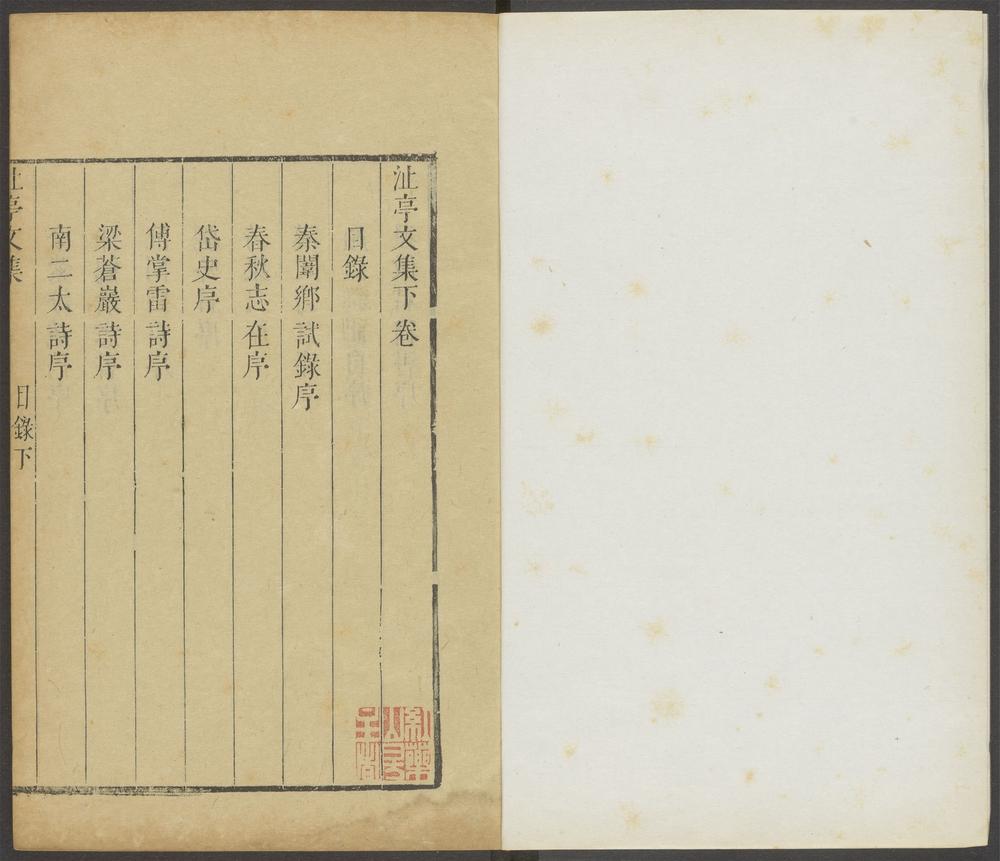 沚亭文集下卷
目錄
秦闈鄉試錄序
春秋志在序
岱史序
傅掌雷詩序
梁蒼巖詩序
南二太詩序
沚亭文集
目錄下